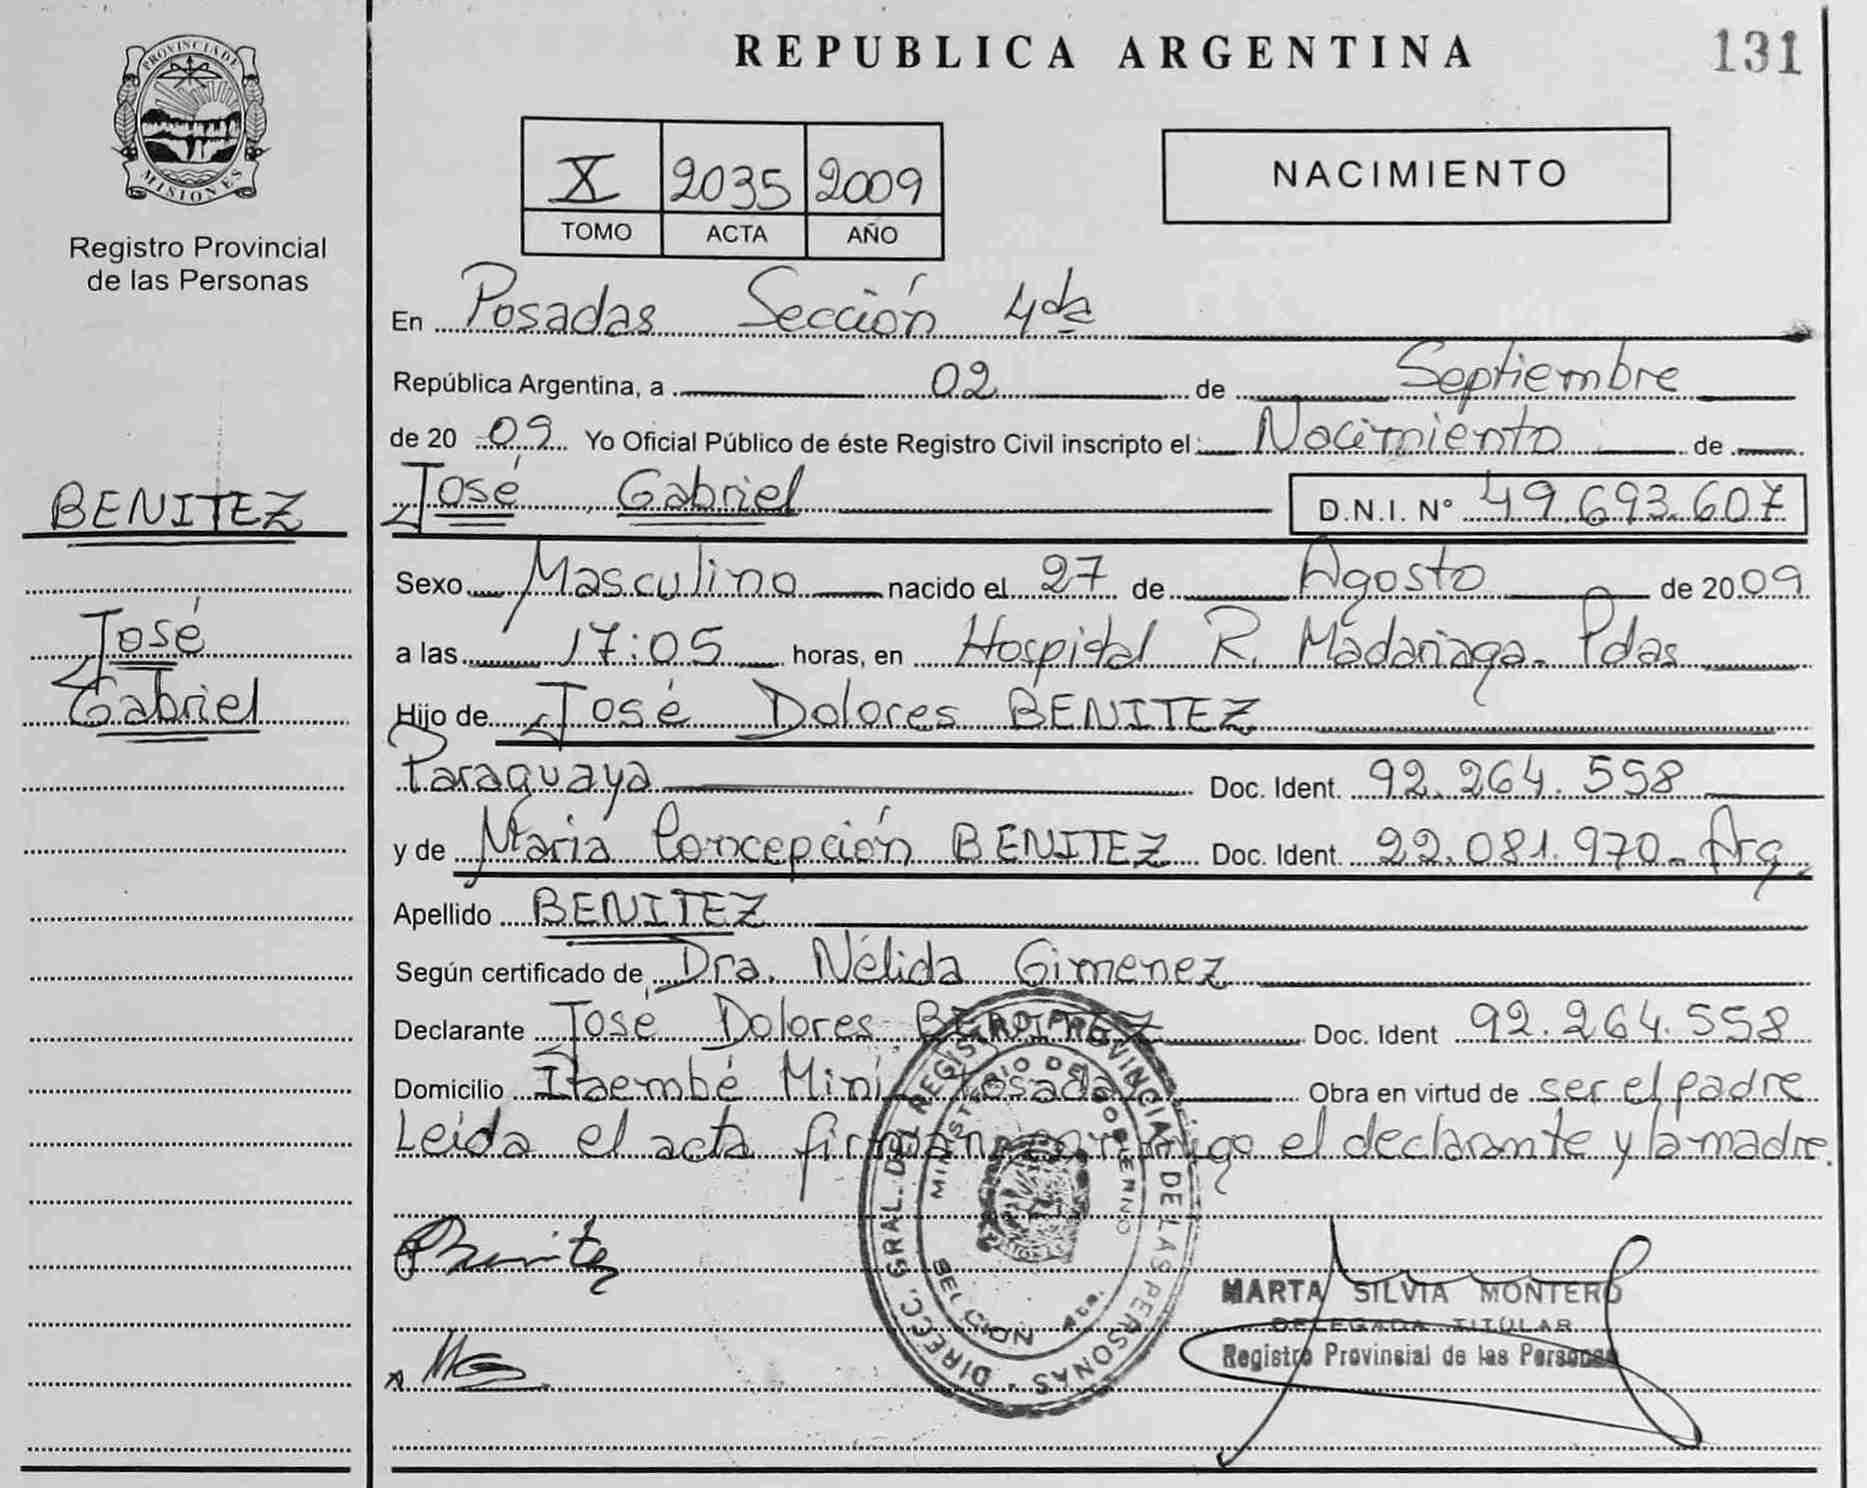 PROVINCIA DE
MISIONES
Registro Provincial
de las Personas
BENITEZ
José
Gabriel
REPUBLICA ARGENTINA
131
X 2035 2009
TOMO ACTA AÑO
NACIMIENTO
En Posadas Sección 4da
República Argentina, a 02 de Septiembre
de 2009 Yo Oficial Público de éste Registro Civil inscripto el Nacimiento de
José Gabriel D.N.I. N° 49.693.607
Sexo Masculino nacido el 27 de Agosto de 2009
a las 17:05 horas, en Hospital R. Madariaga. Pdas
Hijo de José Dolores BENITEZ
Paraguaya Doc. Ident. 92.264.558
y de Maria Concepción BENITEZ Doc. Ident. 22.081.970 - Arg.
Apellido BENITEZ
Según certificado de Dra. Nélida Gimenez
Declarante José Dolores BENITEZ Doc. Ident 92.264.558
Domicilio Itaembé Mini Posadas Obra en virtud de ser el padre
Leída el acta firman conmigo el declarante y la madre.
DIRECC. GRAL. DEL REGISTRO PROVINCIAL DE LAS PERSONAS
MINISTERIO DE GOBIERNO
MARTA SILVIA MONTERO
DELEGADA TITULAR
Registro Provincial de las Personas